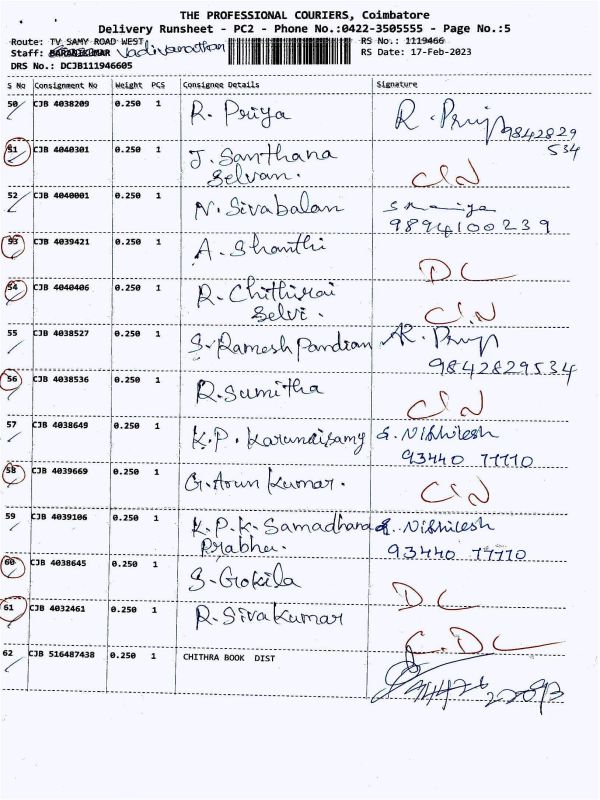 THE PROFESSIONAL COURIERS, Coimbatore
Delivery Runsheet - PC2 - Phone No.:0422-3505555 - Page No.:5
Route: TV SAMY ROAD WEST RS No.: 1119466
Staff: BARANIKUMAR Vadivanathan RS Date: 17-Feb-2023
DRS No.: DCJB111946605
S No Consignment No Weight PCS Consignee Details Signature
50 CJB 4038209 0.250 1 R. Priya R. Priya 9842829
534
51 CJB 4040301 0.250 1 J. Santhana
Selvan. CIN
52 CJB 4040001 0.250 1 N. Sivabalan
9894100239
53 CJB 4039421 0.250 1 A. Shanthi DC
54 CJB 4040406 0.250 1 R. Chithirai
Selvi. CIN
55 CJB 4038527 0.250 1 S. Ramesh Pandian R. Priya
9842829534
56 CJB 4038536 0.250 1 R. Sumitha CIN
57 CJB 4038649 0.250 1 K.P. Karunaisamy S. Nishilesh
93440 77710
58 CJB 4039669 0.250 1 G. Arun Kumar. CIN
59 CJB 4039106 0.250 1 K.P.K. Samadhana S. Nishilesh
Prabhu. 93440 77710
60 CJB 4038645 0.250 1 S. Gokila DC
61 CJB 4032461 0.250 1 R. Sivakumar C.DC
62 CJB 516487438 0.250 1 CHITHRA BOOK DIST